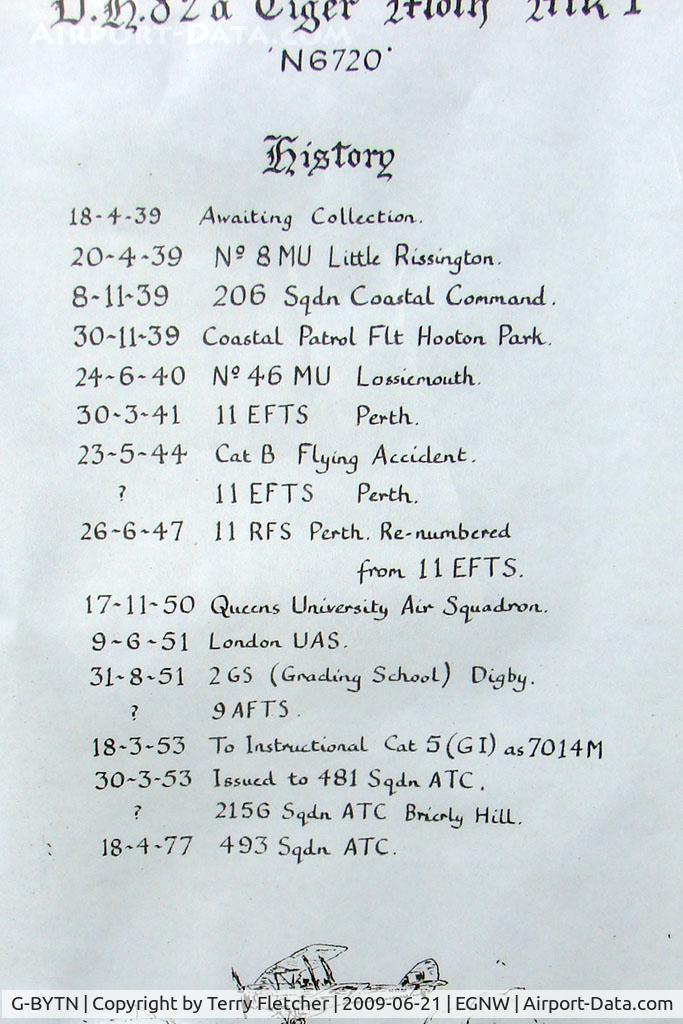 D.H.82a Tiger Moth Mk I
AIRPORT-DATA.COM
'N6720'
History
18-4-39 Awaiting Collection.
20-4-39 Nº 8 MU Little Rissington.
8-11-39 206 Sqdn Coastal Command.
30-11-39 Coastal Patrol Flt Hooton Park.
24-6-40 Nº 46 MU Lossiemouth.
30-3-41 11 EFTS Perth.
23-5-44 Cat B Flying Accident.
? 11 EFTS Perth.
26-6-47 11 RFS Perth. Re-numbered
from 11 EFTS.
17-11-50 Queens University Air Squadron.
9-6-51 London UAS.
31-8-51 2 GS (Grading School) Digby.
? 9 AFTS.
18-3-53 To Instructional Cat 5 (GI) as 7014M
30-3-53 Issued to 481 Sqdn ATC.
? 2156 Sqdn ATC Brierly Hill.
18-4-77 493 Sqdn ATC.
G-BYTN | Copyright by Terry Fletcher | 2009-06-21 | EGNW | Airport-Data.com